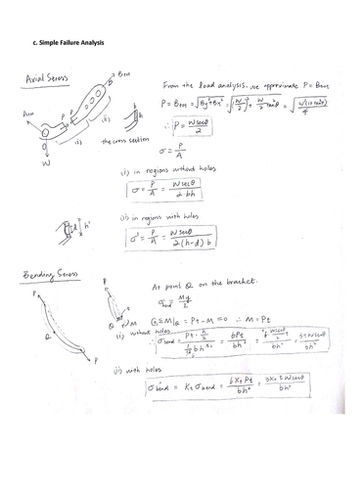 c. Simple Failure Analysis
Axial Stress
From the load analysis, we approximate P = Brest
P = Brest = √(By² + Bx²) = √((W/2)² + W/2 tan²θ) = √(W²(1+tan²θ)/4)
∴ P = W secθ / 2
σ = P/A
the cross section
(i) in regions without holes
σ = P/A = W secθ / 2bh
(ii) in regions with holes
σ' = P/A = W secθ / 2(h-d)b
Bending Stress
At point Q on the bracket.
σbend = My/I
G ΣM|Q = Pt - M = 0 ∴ M = Pt
(i) without holes
∴ σbend = Pt · h/2 / (1/12 bh³) = 6Pt/bh² = 6 W secθ/2 t / bh² = 3t W secθ / bh²
(ii) with holes
σ'bend = Kt σbend = 6Kt Pt / bh² = 3Kt t W secθ / bh²